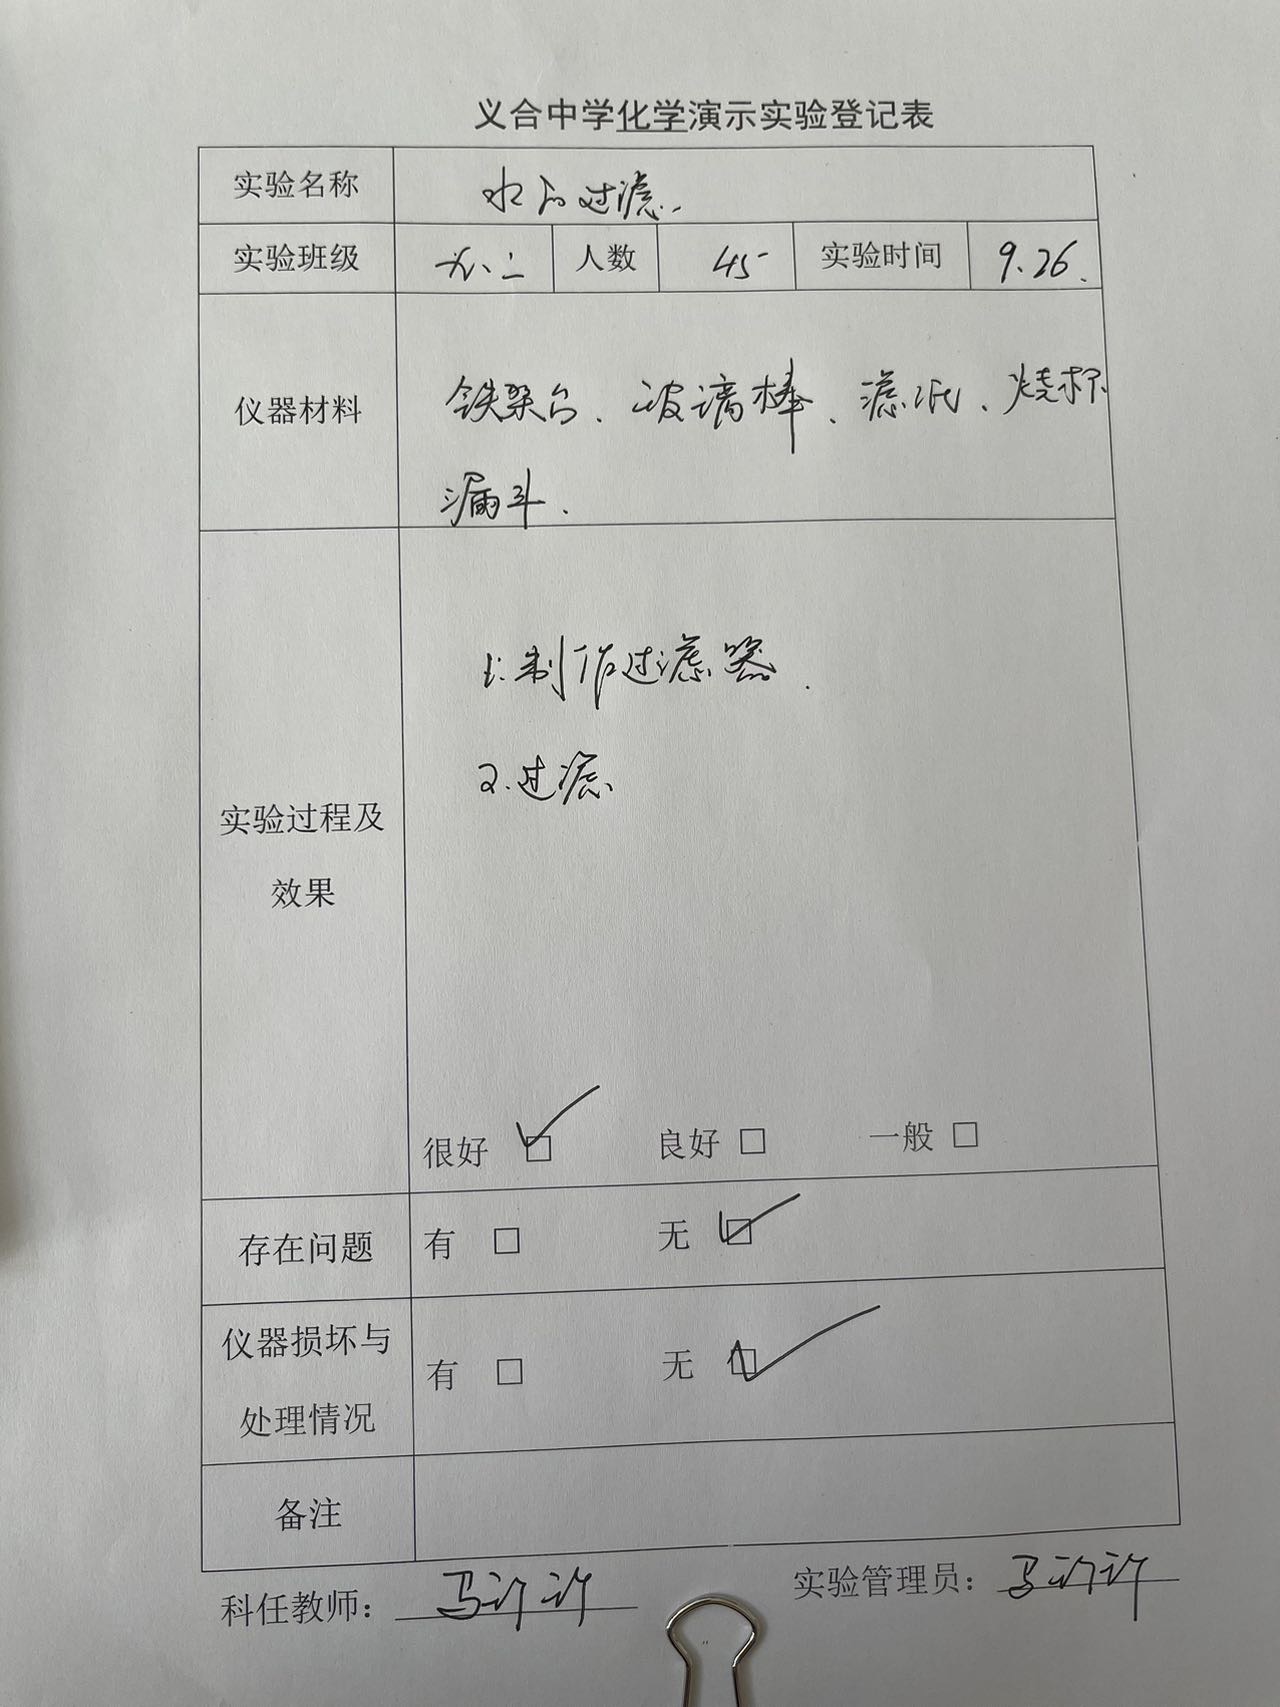 义合中学化学演示实验登记表
实验名称 水的过滤.
实验班级 九、二 人数 45 实验时间 9.26.
仪器材料 铁架台、玻璃棒、滤纸、烧杯
漏斗.
1.制作过滤器.
2.过滤
实验过程及
效果
很好 ☑ 良好 □ 一般 □
存在问题 有 □ 无 ☑
仪器损坏与
处理情况 有 □ 无 ☑
备注
科任教师：马许许 实验管理员：马许许